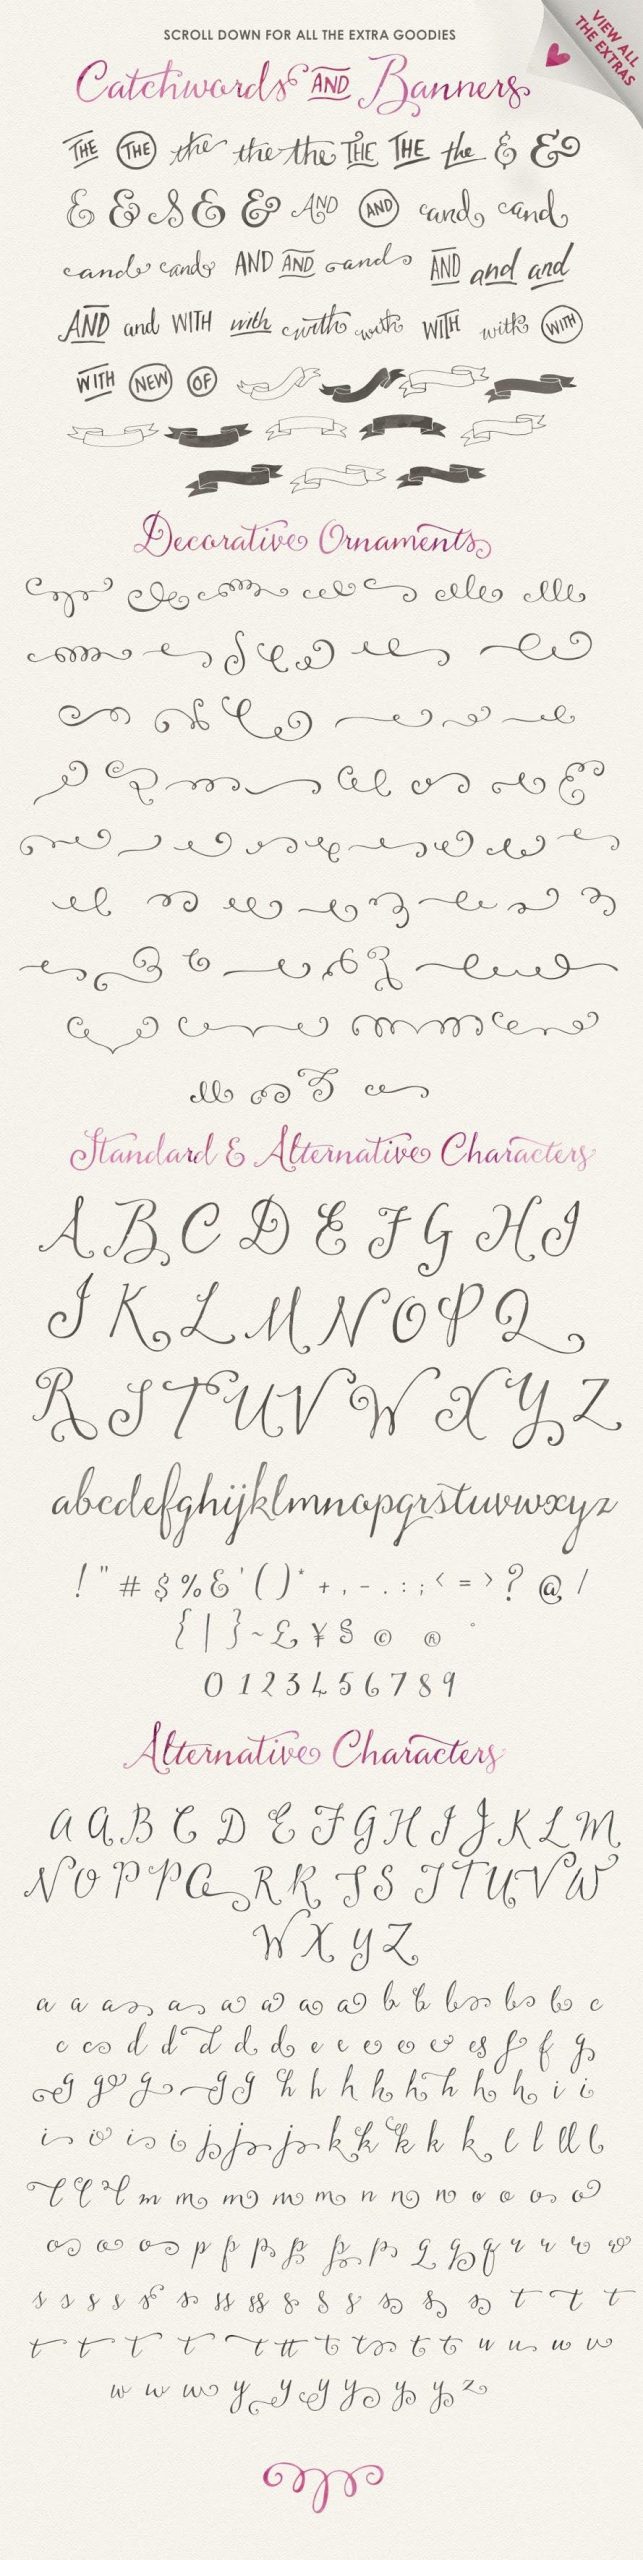 VIEW ALL
THE EXTRAS
SCROLL DOWN FOR ALL THE EXTRA GOODIES
Catchwords AND Banners
THE THE the the the THE THE the & &
& & & & & AND AND and and
and and AND AND and AND and and
AND and WITH with with with WITH with WITH
WITH NEW OF
Decorative Ornaments
Standard & Alternative Characters
A B C D E F G H I
J K L M N O P Q
R S T U V W X Y Z
abcdefghijklmnopqrstuvwxyz
! " # $ % & ' ( ) * + , - . : ; < = > ? @ /
{ | } ~ £ ¥ § © ® °
0 1 2 3 4 5 6 7 8 9
Alternative Characters
A A B C D E F G H I J K L M
N O P P Q R R S S T T U V W
W X Y Z